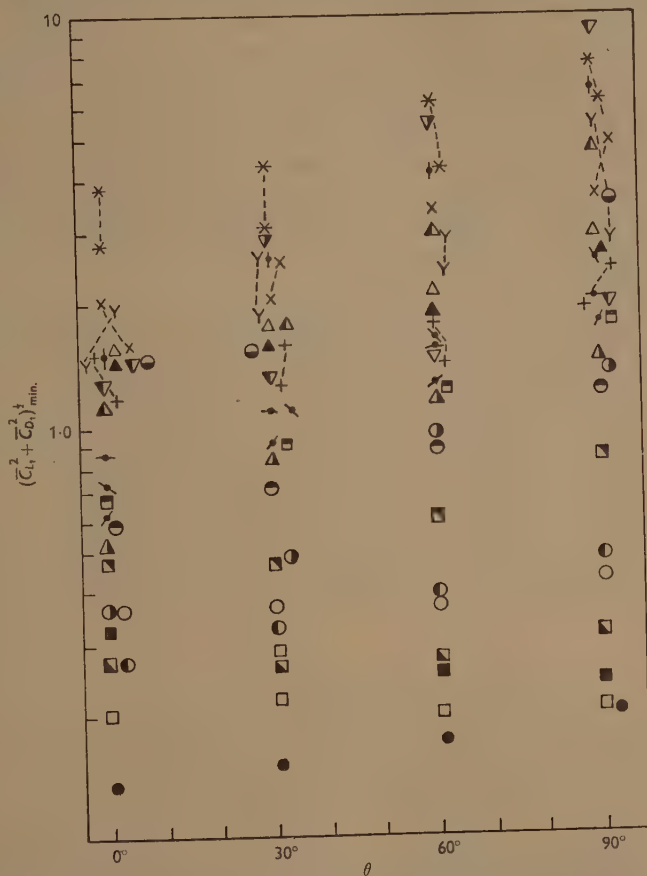 10
1·0
(C̄_{L_1}^2 + C̄_{D_1}^2)^{½}_{min.}
0° 30° 60° 90°
θ